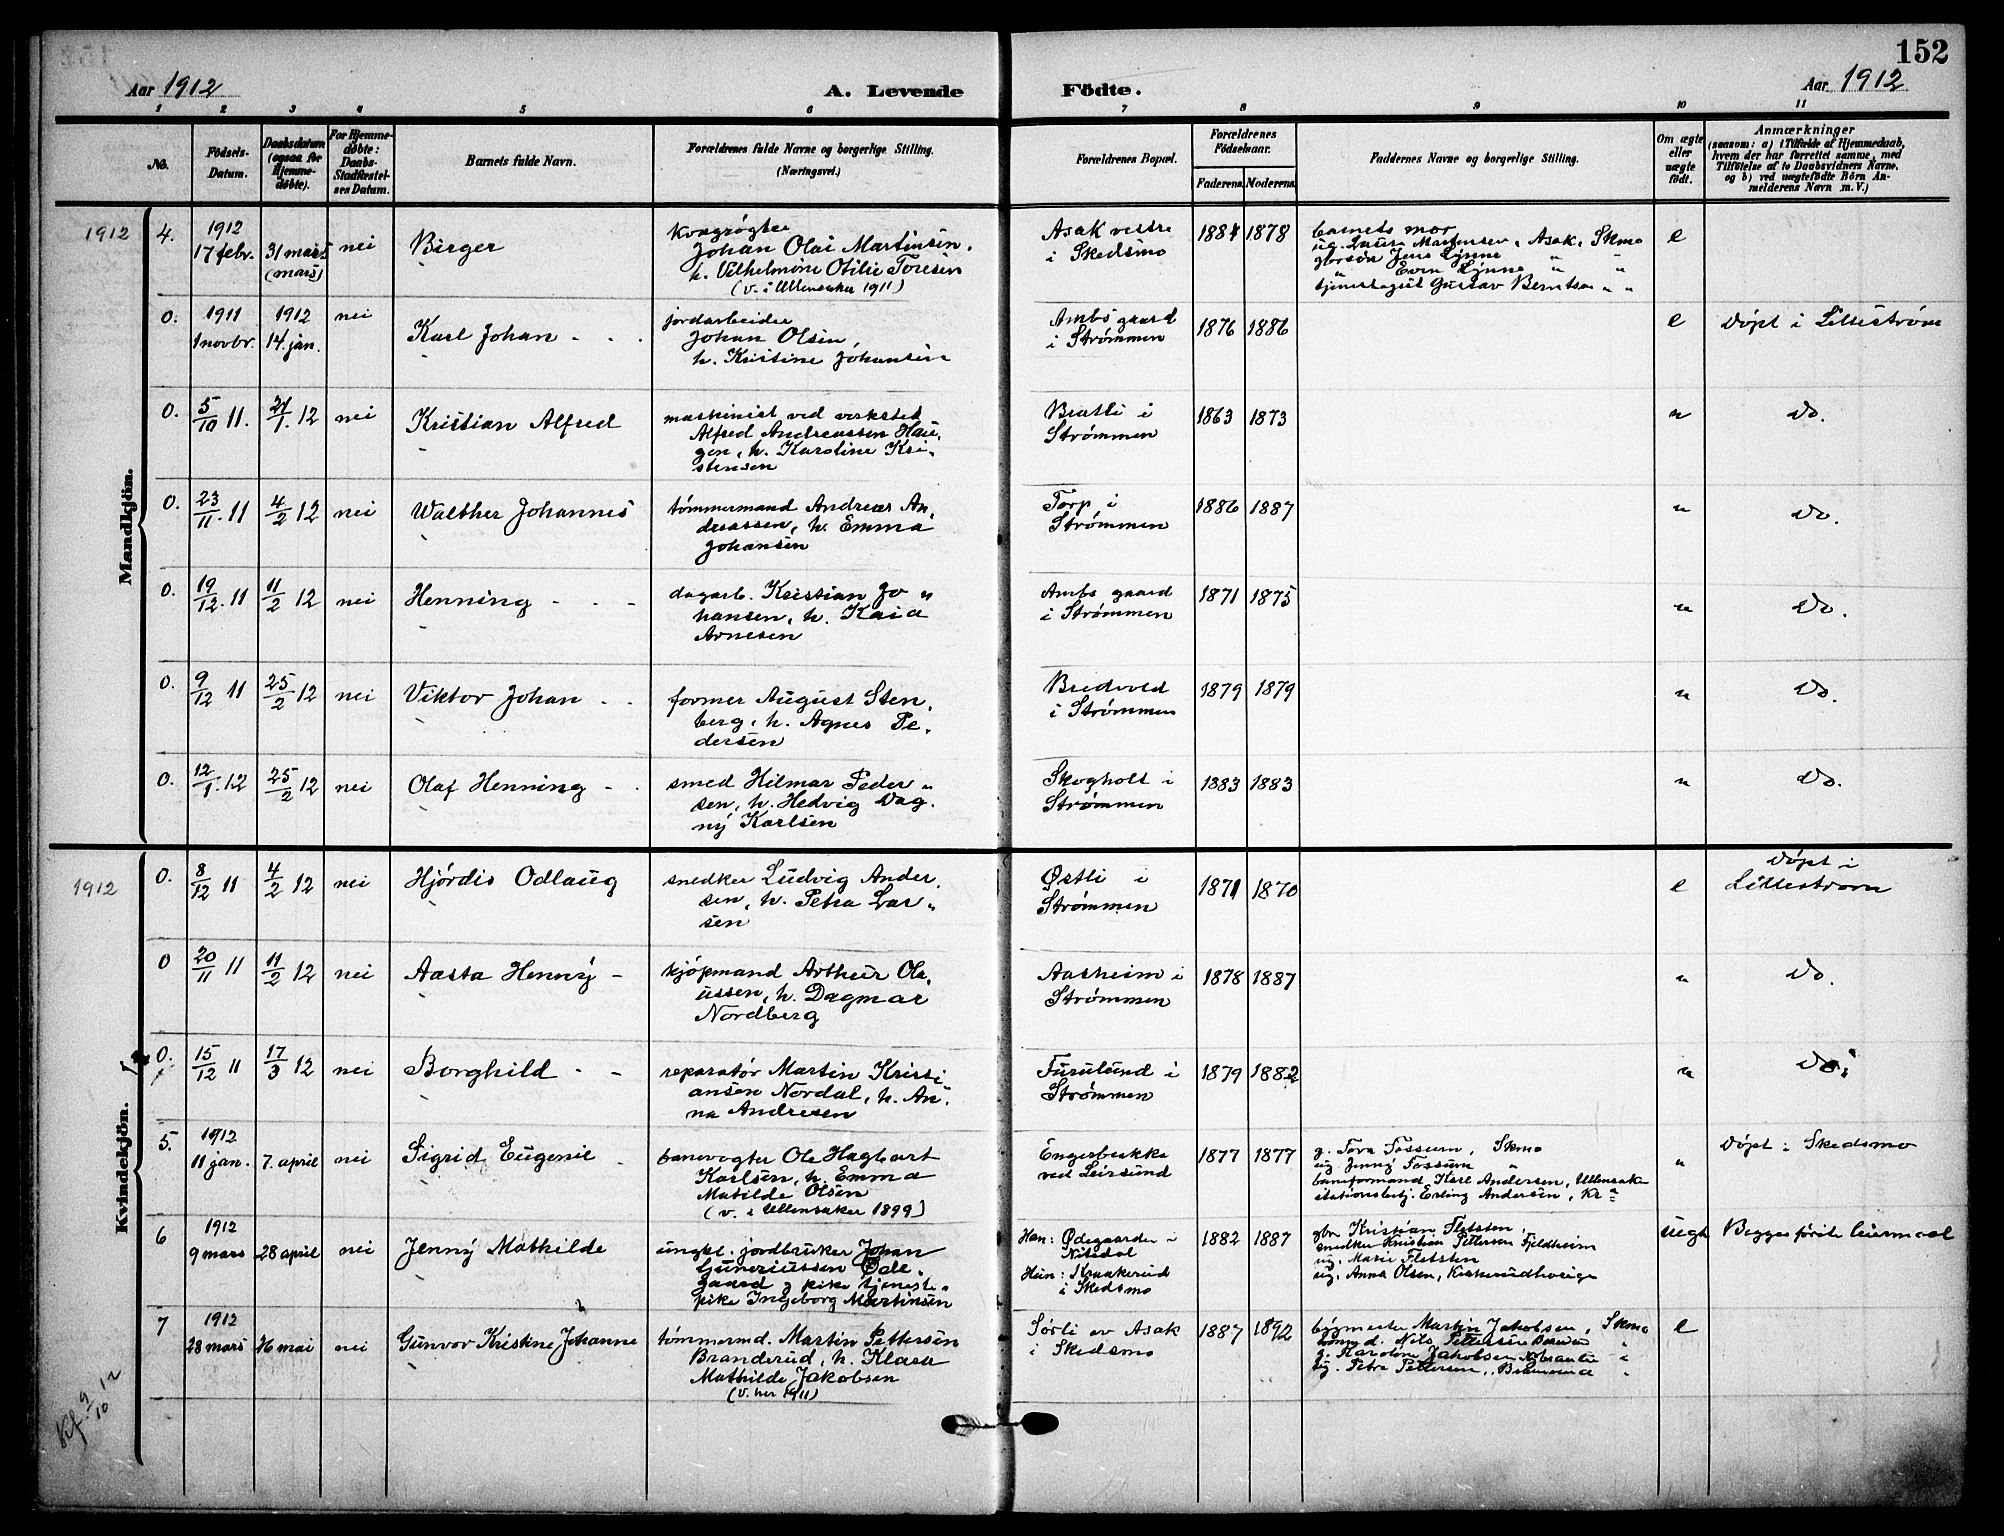 152
Aar 1912
A. Levende Födte.
Aar 1912
1 2 3 4 5 6 7 8 9 10 11
No.
Födsels-Datum.
Daabsdatum (ogsaa for Hjemmedöbte).
For Hjemmedöbte: Daabs-Stadfæstelses Datum.
Barnets fulde Navn.
Forældrenes fulde Navne og borgerlige Stilling. (Næringsvei.)
Forældrenes Bopæl.
Forældrenes Födselsaar.
Faderens. Moderens.
Faddernes Navne og borgerlige Stilling.
Om ægte eller uægte födt.
Anmærkninger
(saasom: a) i Tilfælde af Hjemmedaab, hvem der har forrettet samme, med Tilföielse af to Daabsvidners Navne, og b) ved uægtefödte Börn Anmelderens Navn m. V.)
Mandkjön.
1912
4. 1912 17 febr. 31 mars (mars) nei Birger
kvægrøgter
Johan Olai Martinsen,
h. Vilhelmine Otilie Toresen
(v. i Ullensaker 1911)
Asak vestre
i Skedsmo
1884 1878
barnets mor
ug. Laura Martinsen, Asak, Skmo
gbrsøn Jens Lynne " "
" Even Lynne " "
Gustav Berntsen " "
e
0. 1911 1 novbr. 1912 14 jan. nei Karl Johan
jordarbeider
Johan Olsen,
h. Kristine Johansen
Ambsgaard
i Strømmen
1876 1886
e Døpt i Lillestrøm
0. 5/10 11. 21/1. 12 nei Kristian Alfred
maskinist ved verksted
Alfred Andreassen Hau-
gen, h. Karoline Kri-
stensen
Bratli i
Strømmen
1863 1873
" Do.
0. 23/11. 11 4/2 12 nei Walther Johannes
tømmermand Andreas An-
dreassen, h. Emma
Johansen
Torp i
Strømmen
1886 1887
" Do.
0. 19/12. 11 11/2 12 nei Henning
dagarb. Kristian Jo-
hansen, h. Kaia
Arnesen
Ambs gaard
i Strømmen
1871 1875
" Do.
0. 9/12 11 25/2 12 nei Viktor Johan
former August Sten-
berg, h. Agnes Pe-
dersen
Bredeved
i Strømmen
1879 1879
" Do.
0. 12/1. 12 25/2 12 nei Olaf Henning
smed Hilmar Peder-
sen, h. Hedvig Dag-
ny Karlsen
Skogholt i
Strømmen
1883 1883
" Do.
Kvindekjön.
1912
0. 8/12 11 4/2 12 nei Hjørdis Odlaug
snedker Ludvig Ander-
sen, h. Petra Lar-
sen
Østli i
Strømmen
1871 1870
e Døpt i
Lillestrøm
0 20/11 11 11/2 12 nei Aasta Henny
kjøpmand Arthur Ole-
ussen, h. Dagmar
Nordberg
Aasheim i
Strømmen
1878 1887
" Do.
0. 15/12 11 17/3 12 nei Borghild
reparatør Martin Kristi-
ansen Nordal, h. An-
na Andresen
Furulund i
Strømmen
1879 1882
" Do.
5. 1912 11 jan. 7. april nei Sigrid Eugenie
banevogter Ole Hagbart
Karlsen, h. Emma
Matilde Olsen
(v. i Ullensaker 1899)
Engerbække
ved Leirsund
1877 1877
g. Tora Fossum, Skmo
ug Jenny Fossum "
baneformand Karl Andersen, Ullensaker
stationsbetj. Erling Andersen, Kr a
" Døpt i Skedsmo
6 1912 9 mars 28 april nei Jenny Mathilde
ungkl. jordbruker Johan
Guneriussen Øde-
gaard & pike tjeneste-
pike Ingeborg Martinsen
Han: Ødegaarden i
Nitedal
Hun: Kraakerud
i Skedsmo
1882 1887
gbr Kristian Fletsten,
snedker Kristian Pettersen Fjeldheim
ug. Marie Fletsten
ug. Anna Olsen, Kirkerudhvérige
uegt. Begges første leiermaal
7 1912 28 mars 26 mai nei Gunvor Kristine Johanne
tømmermd. Martin Pettersen
Branderud, h. Klara
Mathilde Jakobsen
(v. her 1911)
Sørli av Asak
i Skedsmo
1887 1892
bygmester Martin Jakobsen, Skmo
tømmd. Nils Pettersen "
g. Karoline Jakobsen "
ug. Petra Pettersen, "
e
Kf. 9/10 12